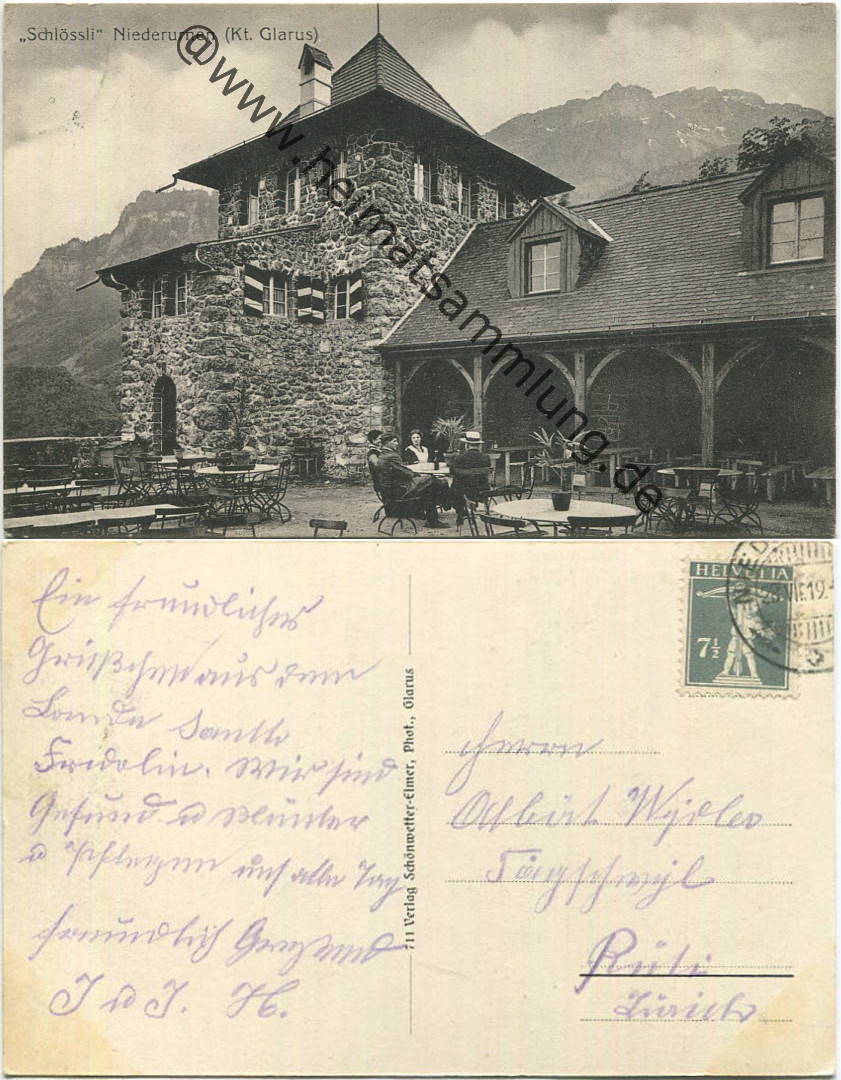 „Schlössli“ Niederurnen (Kt. Glarus)
@www.heimatsammlung.de
Ein freundliches
Grüßchen aus dem
Lande Sankt
Fridolin. Wir sind
Gesund u Munter
u Pflegen uns alle Tag
freundlich Grüssend
J u J. H.
711 Verlag Schönwetter-Elmer, Phot., Glarus
HELVETIA
7½
Herrn
Albert Wydler
Rüti
Zürich